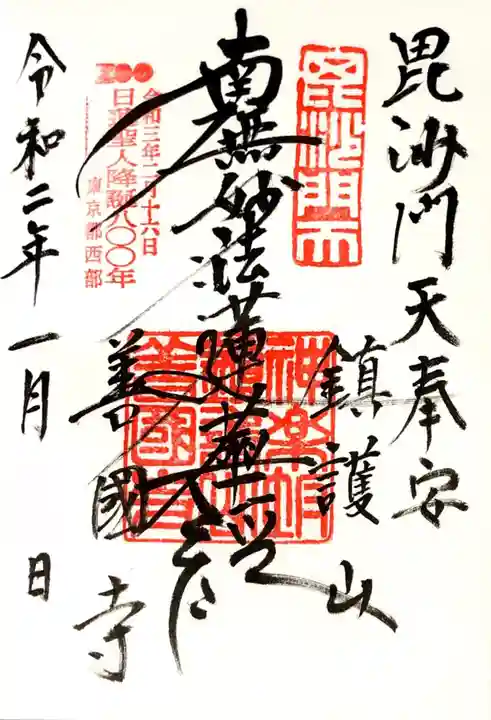 毘沙門天奉安
鎮護山
毘沙門天
南無妙法蓮華経
神楽坂
善国寺
善國寺
令和三年二月十六日
日蓮聖人降誕八〇〇年
東京都西部
令和二年一月 日